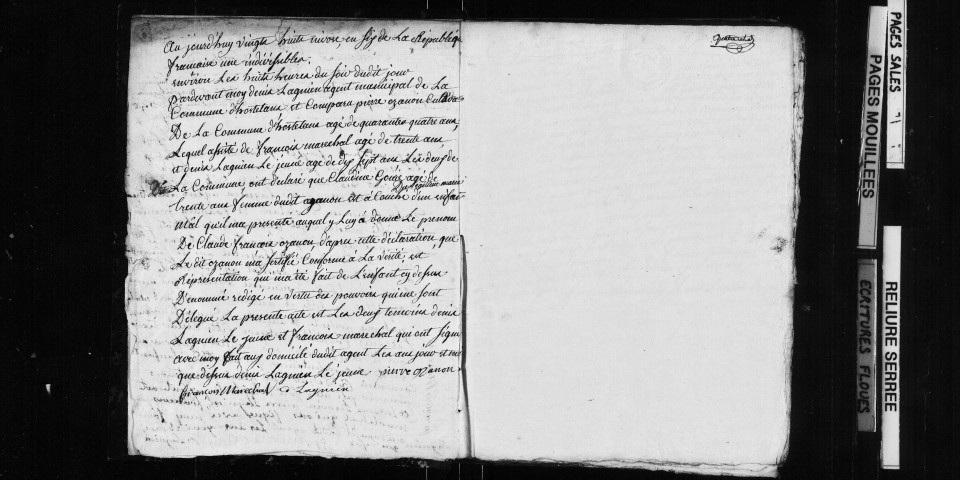 Au jourd'huy vingte huite nivose, en six de La Republique
francaise une indivisibles.
environ Les huite heures du soir dudit jour
pardevant moy denis Lagnien agent municipal de La
Commune d'hostelans et Compara pierre ozanon
De La Commune d'hostelans agé de quarante quatre ans,
Lequel assisté de françois marechal agé de trente ans,
et denis Lagnien Le jeune agé de dix sept ans Les deux de
La Commune, ont declaré que Claudine agé de
trente ans femme dudit ozanon est a Couché d'un enfant
mal qu'il ma presenté auquel y Luy a donné Le prenom
De Claude francois ozanon, d'apres cette déclaration que
Le dit ozanon ma certifié Conforme à La Verité, et
Representation qui ma été fait de L'enfant cy dessus
Denommé redigé en vertu des pouvoirs qui me sont
Délegué La presente acte et Les deux temoins denis
Lagnien Le jeune et francois marechal qui ont signé
avec moy fait aux domicile dudit agent Les ans jour et moi
que dessus denis Lagnien Le jeune pierre ozanon
françois Marechal Lagnien
PAGES SALES
PAGES MOUILLÉES
RELIURE SERREE
ECRITURES FLOUES